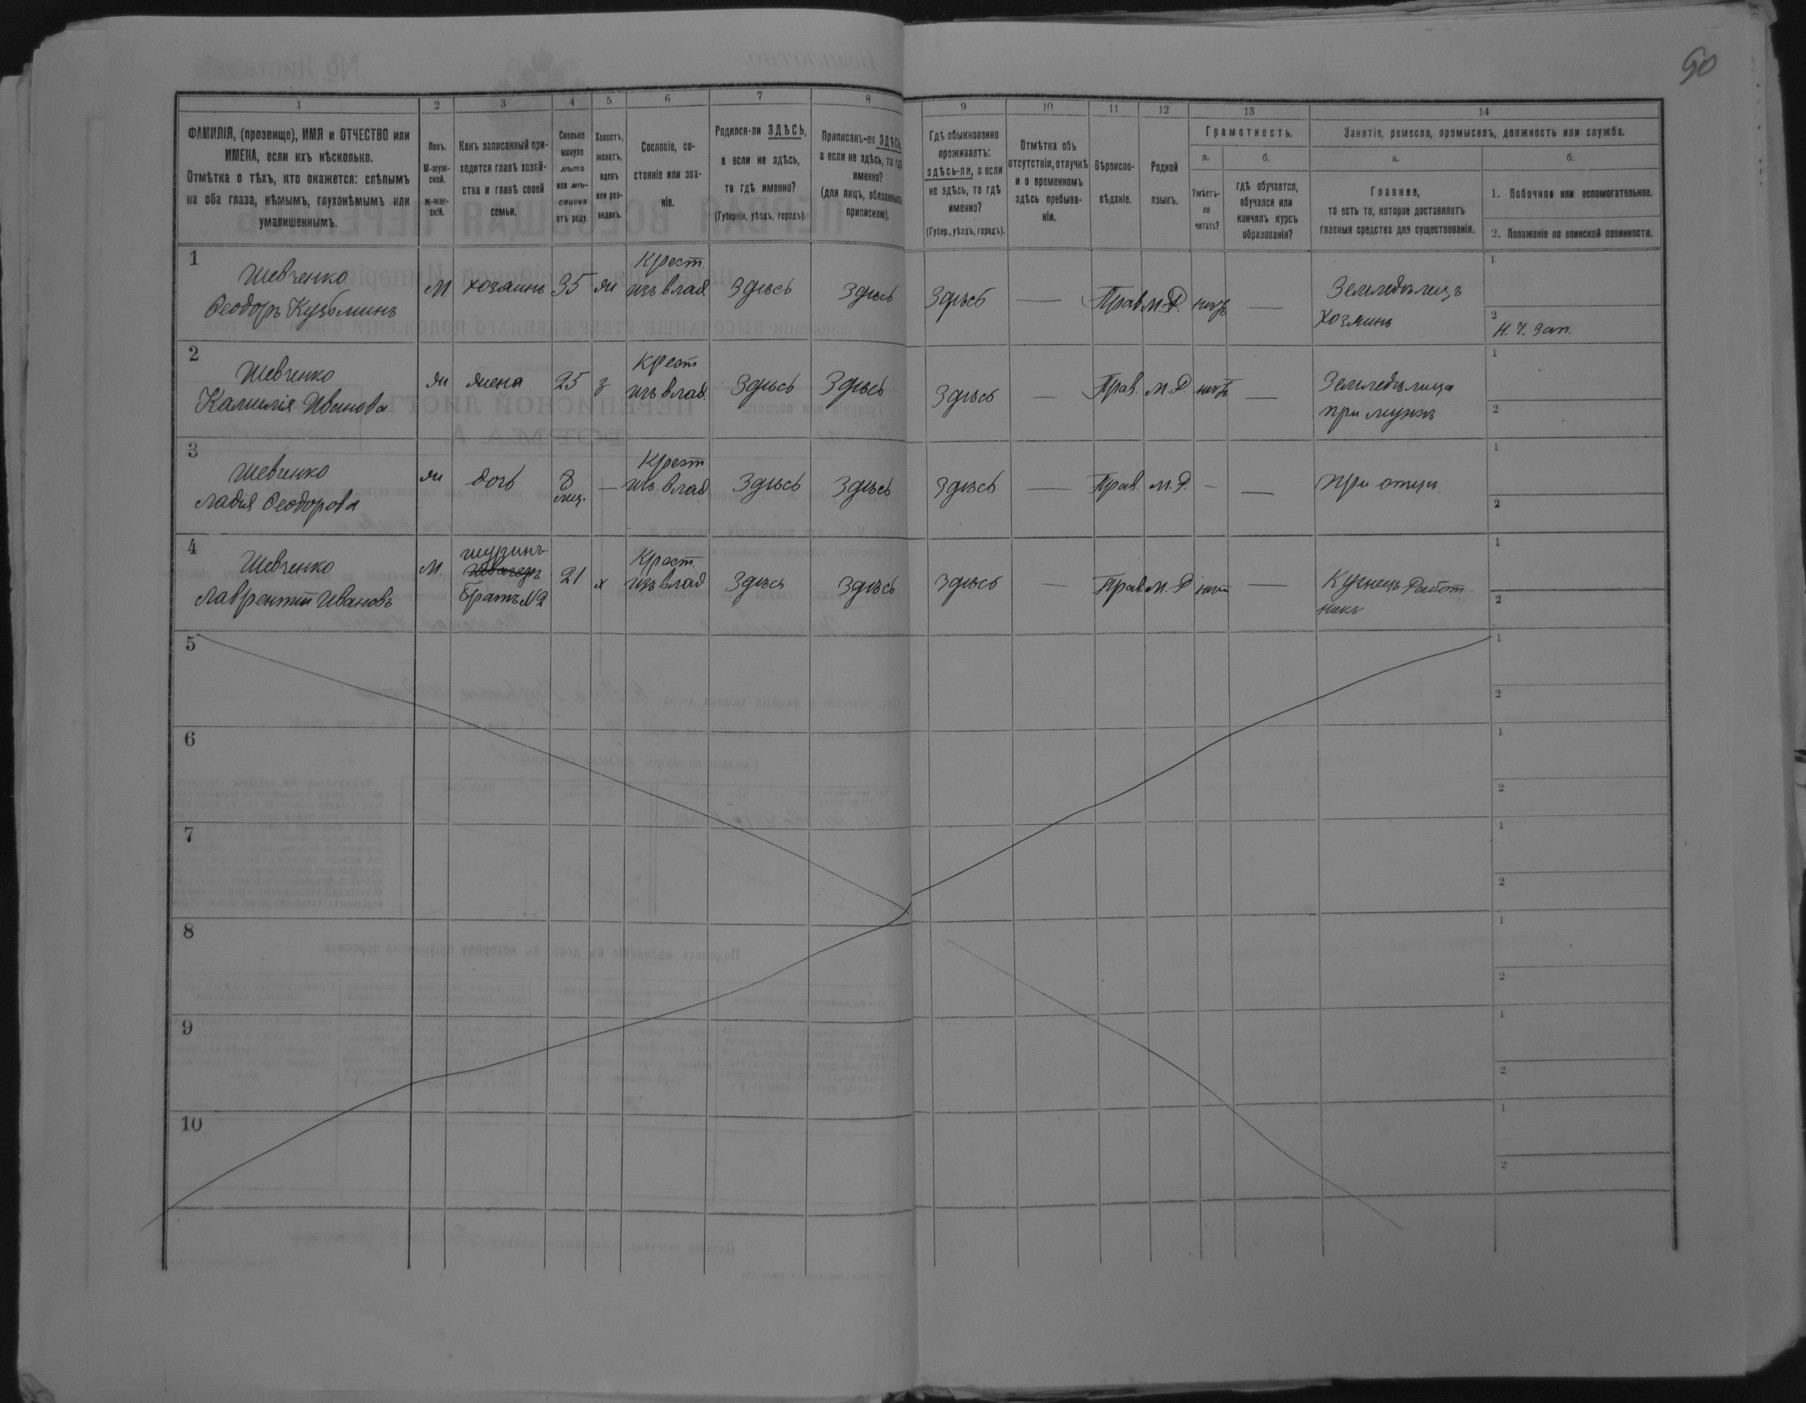 90
1 2 3 4 5 6 7 8 9 10 11 12 13 14
ФАМИЛІЯ, (прозвище), ИМЯ и ОТЧЕСТВО или
ИМЕНА, если ихъ нѣсколько.
Отмѣтка о тѣхъ, кто окажется: слѣпымъ
на оба глаза, нѣмымъ, глухонѣмымъ или
умалишеннымъ.
Полъ.
М-муж-
ской.
Ж-жен-
скій.
Какъ записанный при-
ходится главѣ хозяй-
ства и главѣ своей
семьи.
Сколько
минуло
лѣтъ
или мѣ-
сяцевъ
отъ роду.
Холостъ,
женатъ,
вдовъ
или раз-
веденъ.
Сословіе, со-
стояніе или зва-
ніе.
Родился-ли ЗДѢСЬ,
а если не здѣсь,
то гдѣ именно?
(Губернія, уѣздъ, городъ).
Приписанъ-ли ЗДѢСЬ,
а если не здѣсь, то гдѣ
именно?
(для лицъ, обязанныхъ
припискою).
Гдѣ обыкновенно
проживаетъ:
здѣсь-ли, а если
не здѣсь, то гдѣ
именно?
(Губер., уѣздъ, городъ).
Отмѣтка объ
отсутствіи, отлучкѣ
и о временномъ
здѣсь пребыва-
ніи.
Вѣроиспо-
вѣданіе.
Родной
языкъ.
Грамотность.
а.
Умѣетъ-
ли
читать?
б.
гдѣ обучается,
обучался или
кончилъ курсъ
образованія?
Занятіе, ремесло, промыселъ, должность или служба.
а.
Главное,
то есть то, которое доставляетъ
главныя средства для существованія.
б.
1. Побочное или вспомогательное.
2. Положеніе по воинской повинности.
1
Шевченко
Ѳеодоръ Кузьминъ
М хозяинъ 35 ж
Крест
изъ влад
Здѣсь Здѣсь Здѣсь — Прав. М.Р. нѣтъ —
Земледѣлецъ
хозяинъ
1
2 Н. Ч. Зап.
2
Шевченко
Иванова
ж жена 25 з
Крест
изъ влад
Здѣсь Здѣсь Здѣсь — Прав. М.Р. нѣтъ —
Земледѣлица
при мужѣ
1
2
3
Шевченко
Ѳеодорова
ж дочь 8
мѣс. —
Крест
изъ влад
Здѣсь Здѣсь Здѣсь — Прав. М.Р. — —
При отцѣ
1
2
4
Шевченко
Лаврентій Ивановъ
М
шуринъ
братъ №2
21 х
Крест.
изъ влад
Здѣсь Здѣсь Здѣсь — Прав. М.Р. нѣтъ —
Кузнецъ Работ-
никъ
1
2
5
1
2
6
1
2
7
1
2
8
1
2
9
1
2
10
1
2